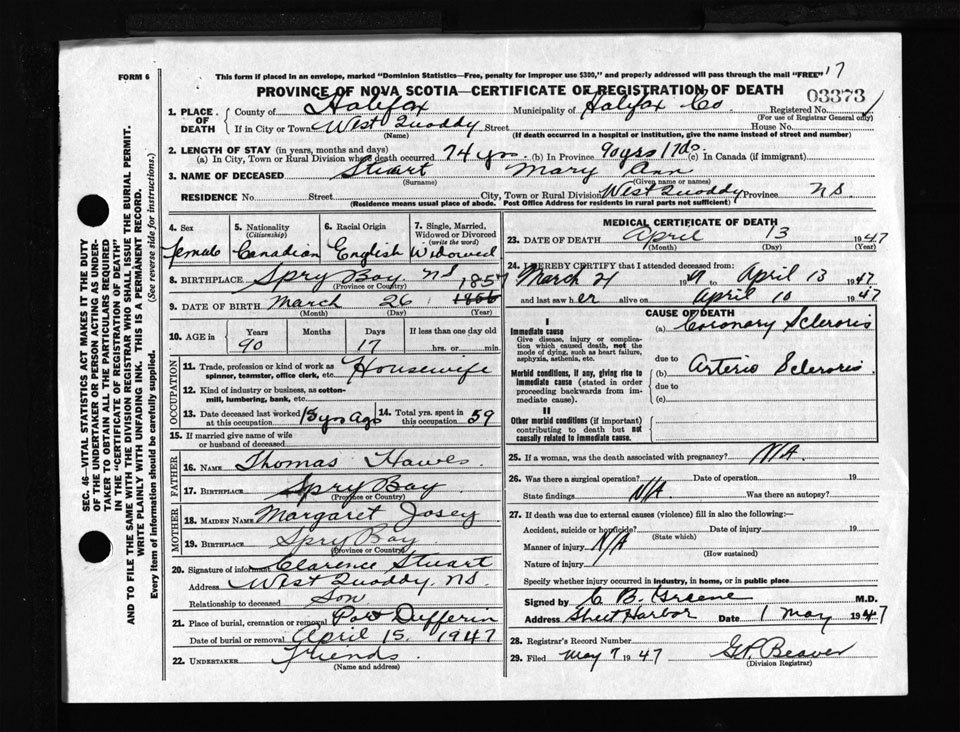 FORM 6
This form if placed in an envelope, marked "Dominion Statistics—Free, penalty for improper use $300," and properly addressed will pass through the mail "FREE" 17
PROVINCE OF NOVA SCOTIA—CERTIFICATE OF REGISTRATION OF DEATH
03373
1. PLACE OF DEATH County of Halifax Municipality of Halifax Co Registered No. 1
(For use of Registrar General only)
If in City or Town West Quoddy Street House No.
(Name) (If death occurred in a hospital or institution, give the name instead of street and number)
2. LENGTH OF STAY (in years, months and days)
(a) In City, Town or Rural Division where death occurred 74 yrs. (b) In Province 90 yrs 17 ds. (c) In Canada (if immigrant)
3. NAME OF DECEASED Stuart Mary Ann
(Surname) (Given name or names)
RESIDENCE No. Street City, Town or Rural Division West Quoddy Province NS
(Residence means usual place of abode. Post Office Address for residents in rural parts not sufficient)
4. Sex Female
5. Nationality (Citizenship) Canadian
6. Racial Origin English
7. Single, Married, Widowed or Divorced (write the word) Widowed
8. BIRTHPLACE Spry Bay NS
(Province or Country)
1857
9. DATE OF BIRTH March 26 1856
(Month) (Day) (Year)
10. AGE in Years Months Days If less than one day old
90 17 hrs. or min.
OCCUPATION
11. Trade, profession or kind of work as spinner, teamster, office clerk, etc. Housewife
12. Kind of industry or business, as cotton-mill, lumbering, bank, etc.
13. Date deceased last worked at this occupation 15 yrs ago
14. Total yrs. spent in this occupation 59
15. If married give name of wife or husband of deceased
FATHER
16. NAME Thomas Hawes
17. BIRTHPLACE Spry Bay
(Province or Country)
MOTHER
18. MAIDEN NAME Margaret Josey
19. BIRTHPLACE Spry Bay
(Province or Country)
20. Signature of informant Clarence Stuart
Address West Quoddy, NS
Relationship to deceased Son
21. Place of burial, cremation or removal Port Dufferin
Date of burial or removal April 15, 1947
22. UNDERTAKER Friends
(Name and address)
MEDICAL CERTIFICATE OF DEATH
23. DATE OF DEATH April 13 1947
(Month) (Day) (Year)
24. I HEREBY CERTIFY that I attended deceased from:
March 21 1947 to April 13 1947
and last saw her alive on April 10 1947
CAUSE OF DEATH
I
Immediate cause (a) Coronary Sclerosis
Give disease, injury or complication which caused death, not the mode of dying, such as heart failure, asphyxia, asthenia, etc.
due to
Morbid conditions, if any, giving rise to immediate cause (stated in order proceeding backwards from immediate cause).
(b) Arterio Sclerosis
due to
(c)
II
Other morbid conditions (if important) contributing to death but not causally related to immediate cause.
25. If a woman, was the death associated with pregnancy? N/A
26. Was there a surgical operation? Date of operation 19
State findings N/A Was there an autopsy?
27. If death was due to external causes (violence) fill in also the following:—
Accident, suicide or homicide? Date of injury 19
(State which)
Manner of injury N/A
(How sustained)
Nature of injury
Specify whether injury occurred in industry, in home, or in public place
Signed by C B Greene M.D.
Address Sheet Harbor Date 1 May 1947
28. Registrar's Record Number
29. Filed May 7 1947 G.P. Beaver
(Division Registrar)
SEC. 46—VITAL STATISTICS ACT MAKES IT THE DUTY
OF THE UNDERTAKER OR PERSON ACTING AS UNDER-
TAKER TO OBTAIN ALL THE PARTICULARS REQUIRED
IN THE "CERTIFICATE OF REGISTRATION OF DEATH"
AND TO FILE THE SAME WITH THE DIVISION REGISTRAR WHO SHALL ISSUE THE BURIAL PERMIT.
WRITE PLAINLY WITH UNFADING INK. THIS IS A PERMANENT RECORD.
Every item of information should be carefully supplied. (See reverse side for instructions.)